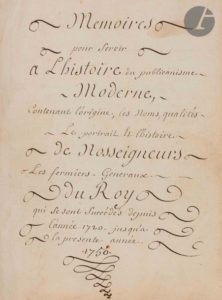 Memoires
pour Servir
a L'histoire du publicanisme
Moderne,
Contenant l'origine, les Noms qualités
Le portrait et l'histoire
de Nosseigneurs
Les fermiers Generaux
du Roy
qui se sont Succédés depuis
l'année 1720. jusqu'a
la presente année
1750